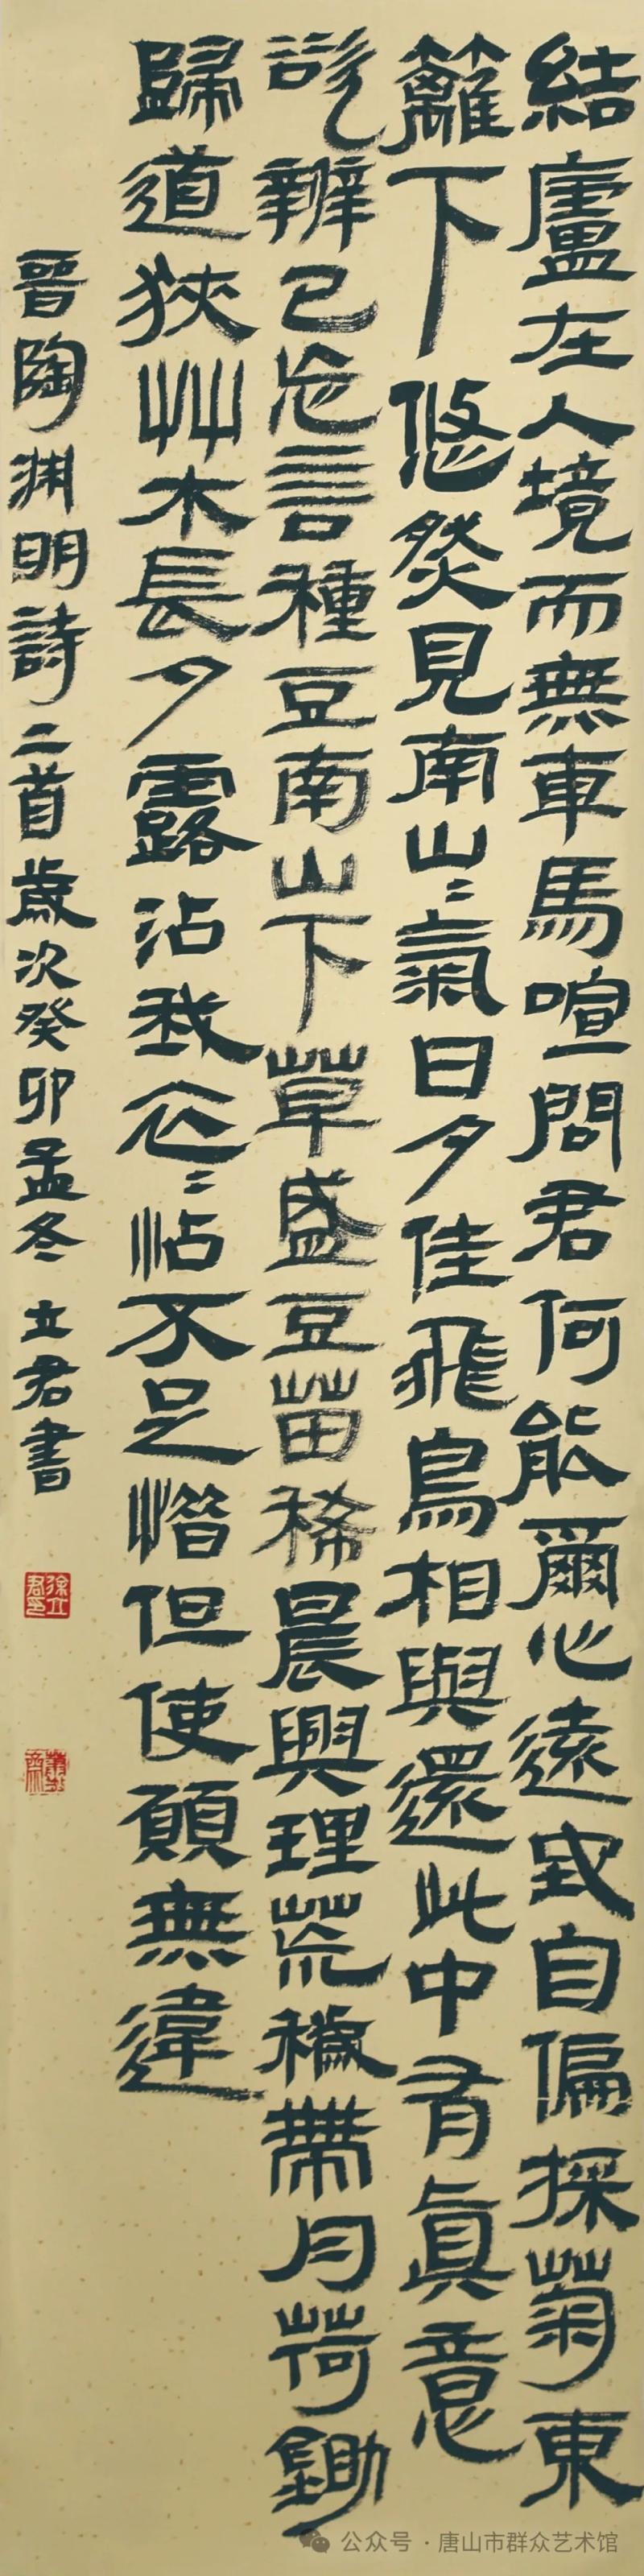 結廬在人境而無車馬喧問君何能爾心遠地自偏採菊東
籬下悠然見南山〻氣日夕佳飛鳥相與還此中有真意
欲辨已忘言種豆南山下草盛豆苗稀晨興理荒穢帶月荷鋤
歸道狹艸木長夕露沾我衣〻沾不足惜但使願無違
晉陶淵明詩二首歲次癸卯孟冬 立君書
徐立君印
公众号·唐山市群众艺术馆